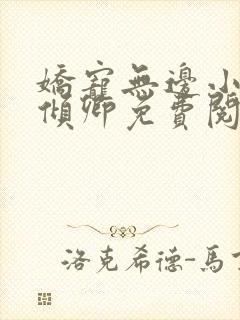 嬌寵無邊小
傾卿免費閱
洛克希德-馬丁